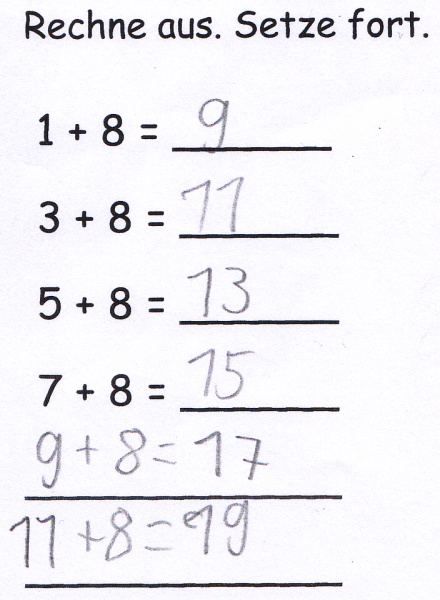 Rechne aus. Setze fort.
1 + 8 = 9
3 + 8 = 11
5 + 8 = 13
7 + 8 = 15
9 + 8 = 17
11 + 8 = 19